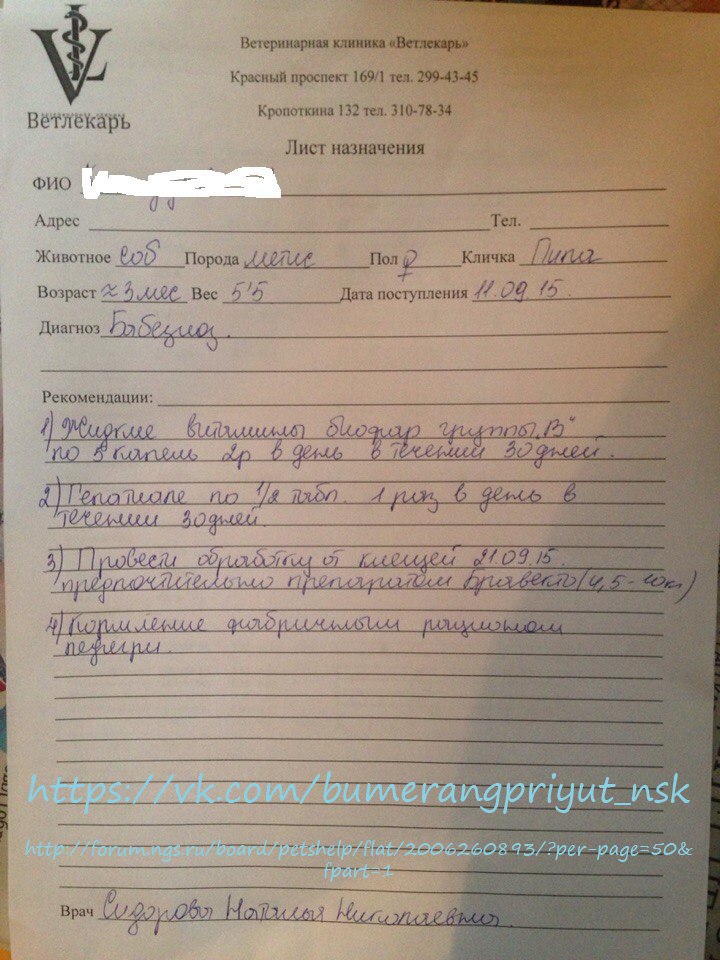 Ветлекарь
Ветеринарная клиника «Ветлекарь»
Красный проспект 169/1 тел. 299-43-45
Кропоткина 132 тел. 310-78-34
Лист назначения
ФИО
Адрес Тел.
Животное соб Порода метис Пол ♀ Кличка Пипа
Возраст ≈ 3 мес Вес 5'5 Дата поступления 11.09.15.
Диагноз Бабезиоз.
Рекомендации:
1) Жидкие витамины биофар группы „В"
по 5 капель 2р в день в течении 30 дней.
2) Гепатиале по 1/2 табл. 1 раз в день в
течении 30 дней.
3) Провести обработку от клещей 21.09.15.
предпочтительно препаратом Бравекто (4,5-10кг)
4) Кормление фабричным рационом
педигри.
https://vk.com/bumerangpriyut_nsk
http://forum.ngs.ru/board/petshelp/flat/2006260893/?per-page=50&
fpart=1
Врач Сидорова Наталья Николаевна